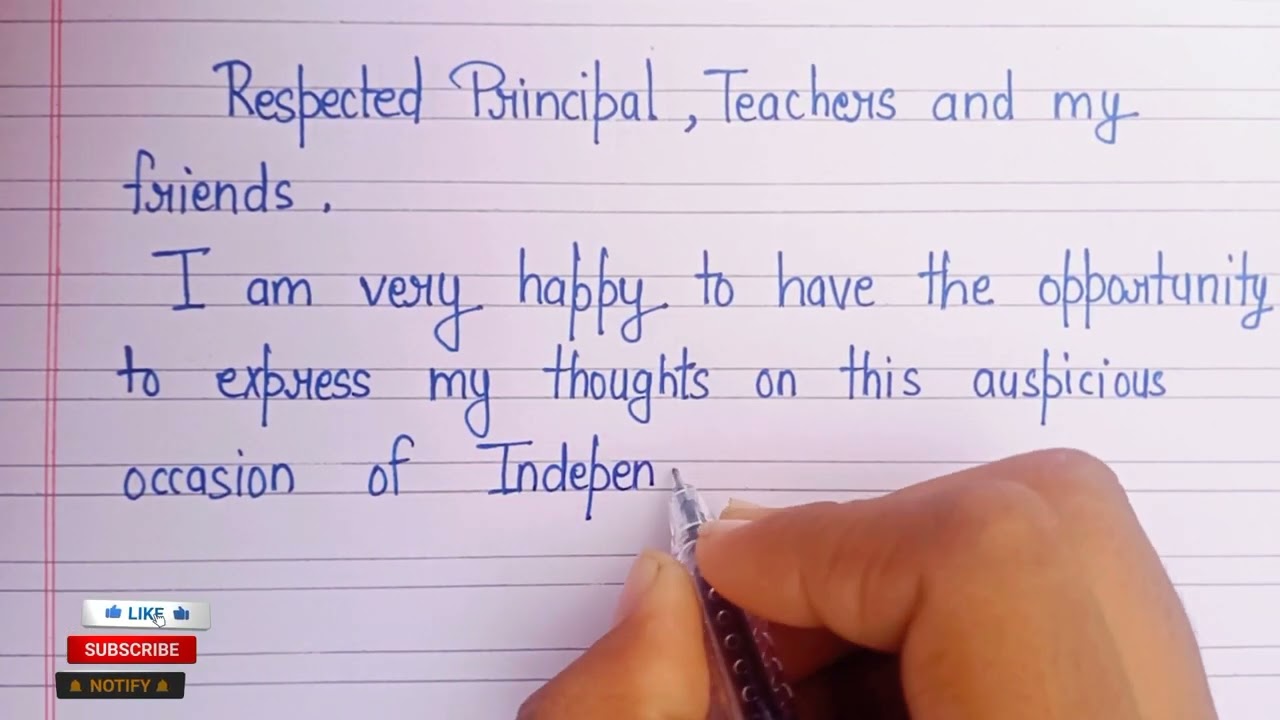 Respected Principal, Teachers and my
friends.
I am very happy to have the opportunity
to express my thoughts on this auspicious
occasion of Indepen
LIKE
SUBSCRIBE
NOTIFY